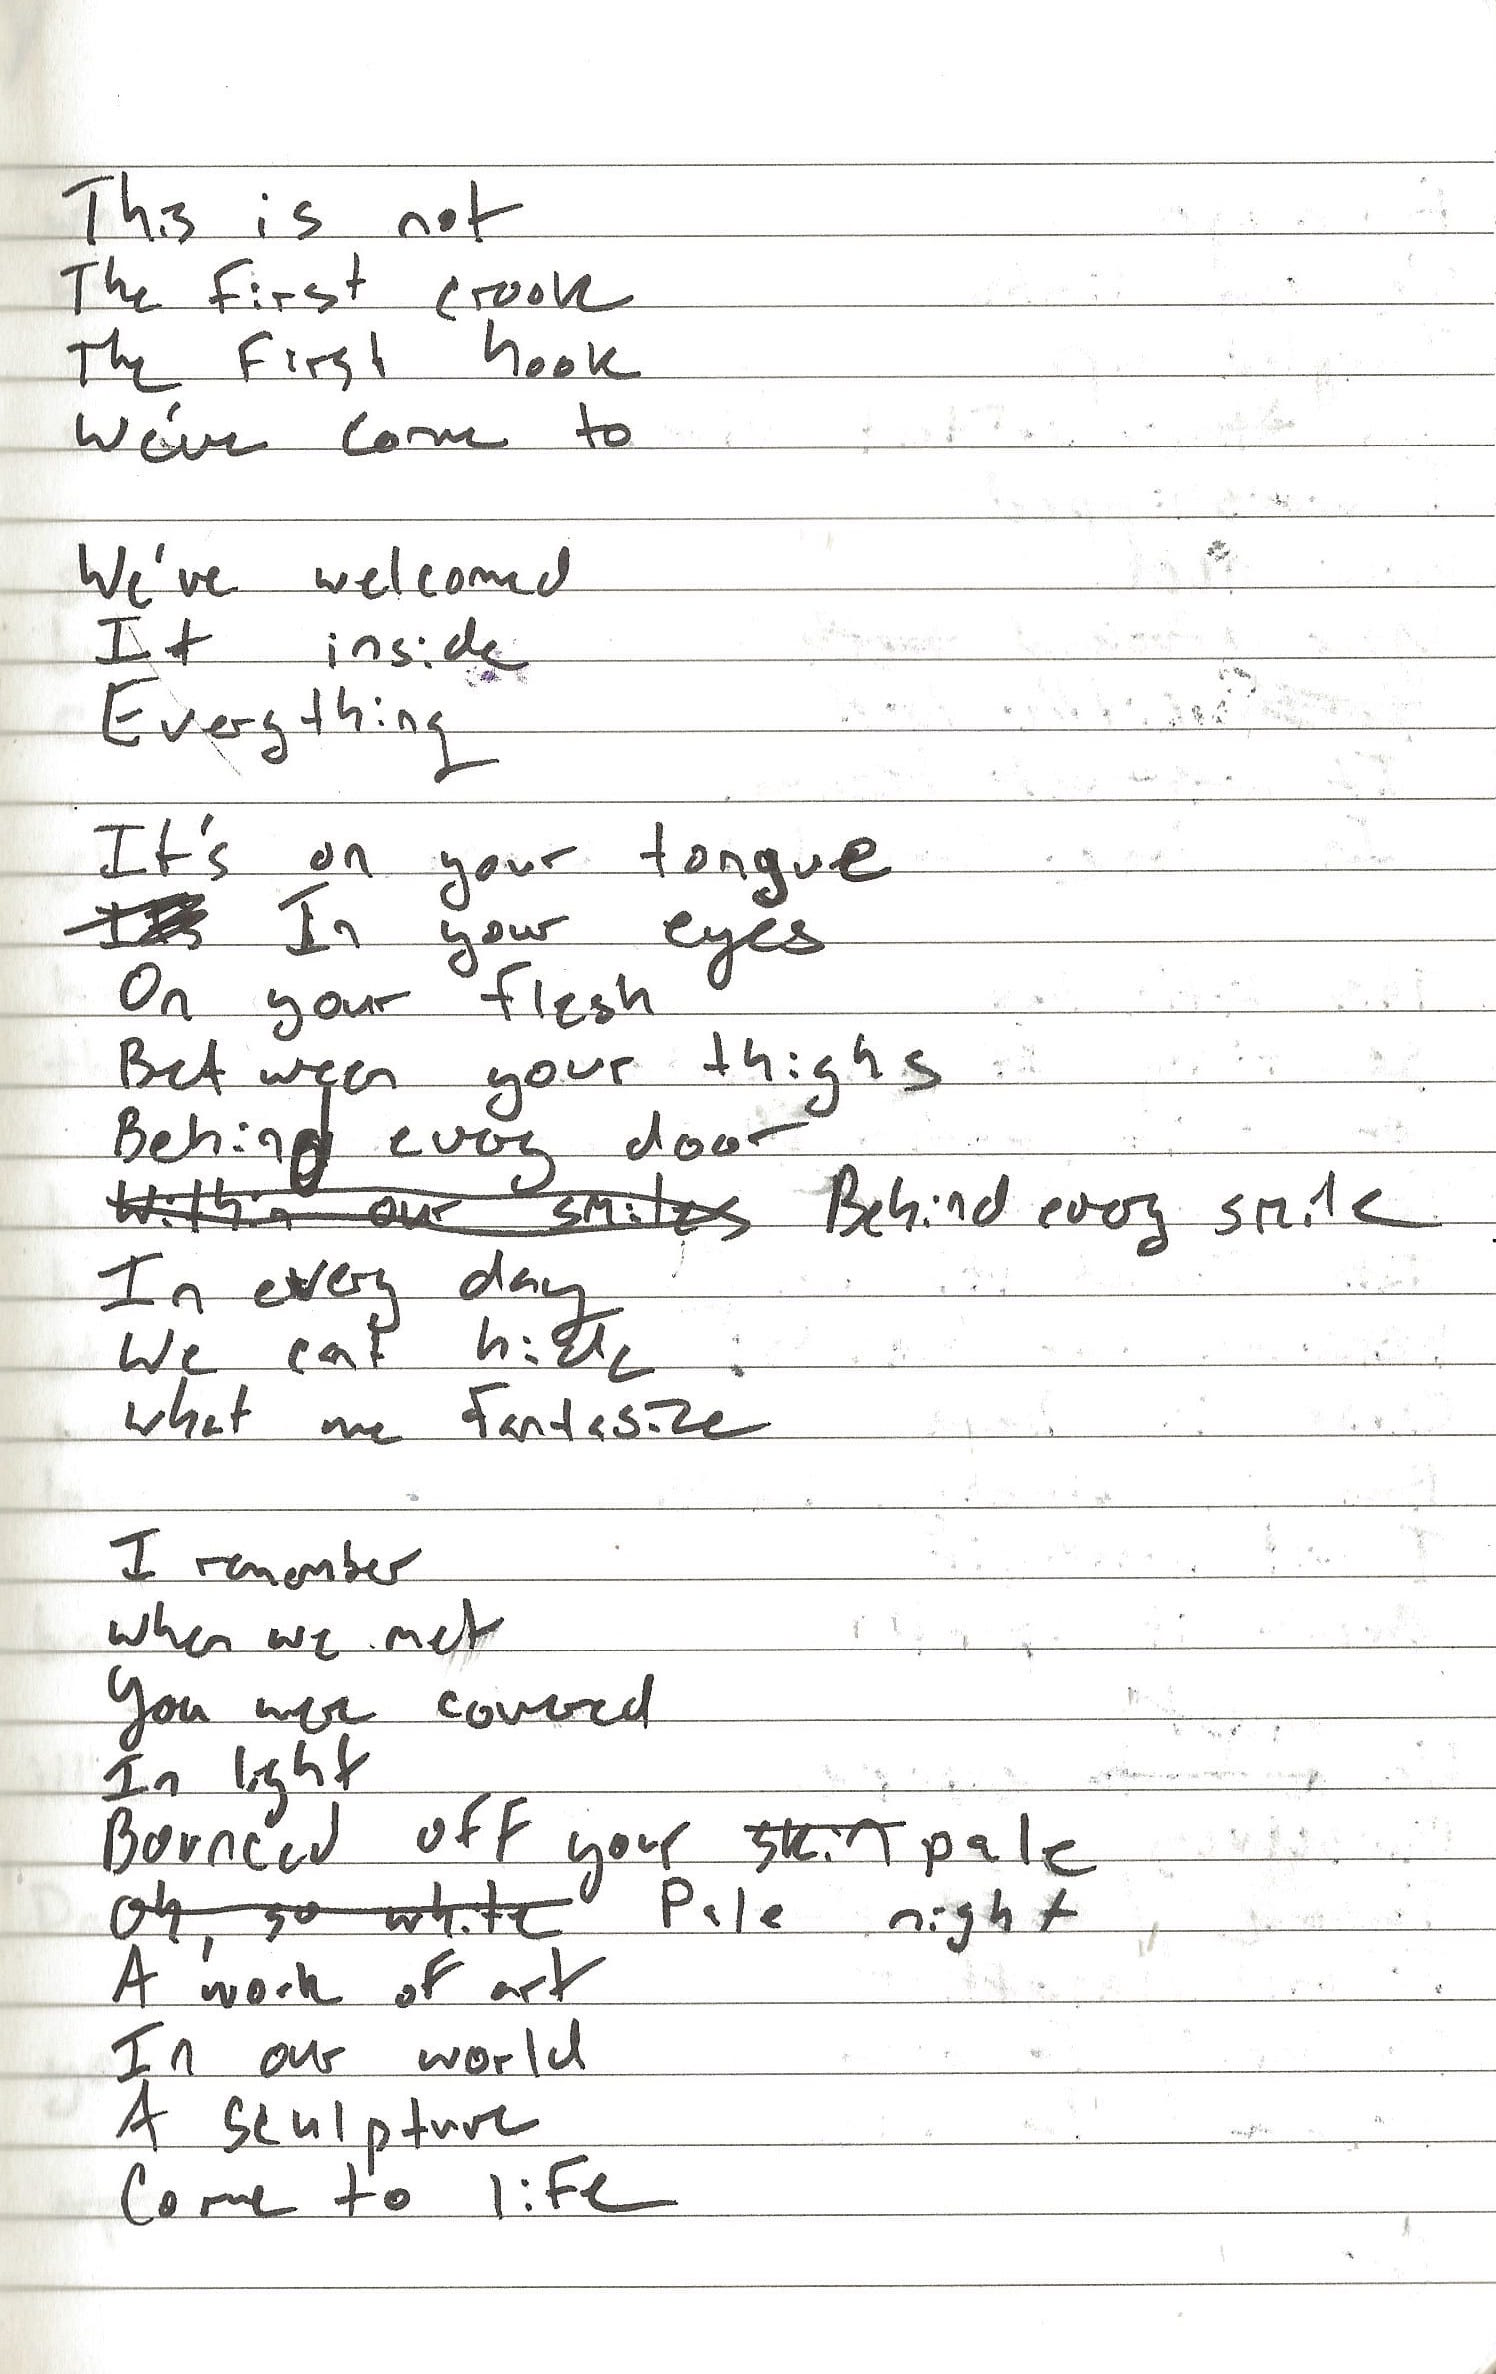 This is not
The first crook
The first hook
We've come to
We've welcomed
It inside
Everything
It's on your tongue
In your eyes
On your flesh
Between your thighs
Behind every door
Within our smiles Behind every smile
In every day
We cat hide
what we fantasize
I remember
when we met
You were covered
In light
Bounced off your skin pale
Oh, so white Pale night
A work of art
In our world
A sculpture
Come to life